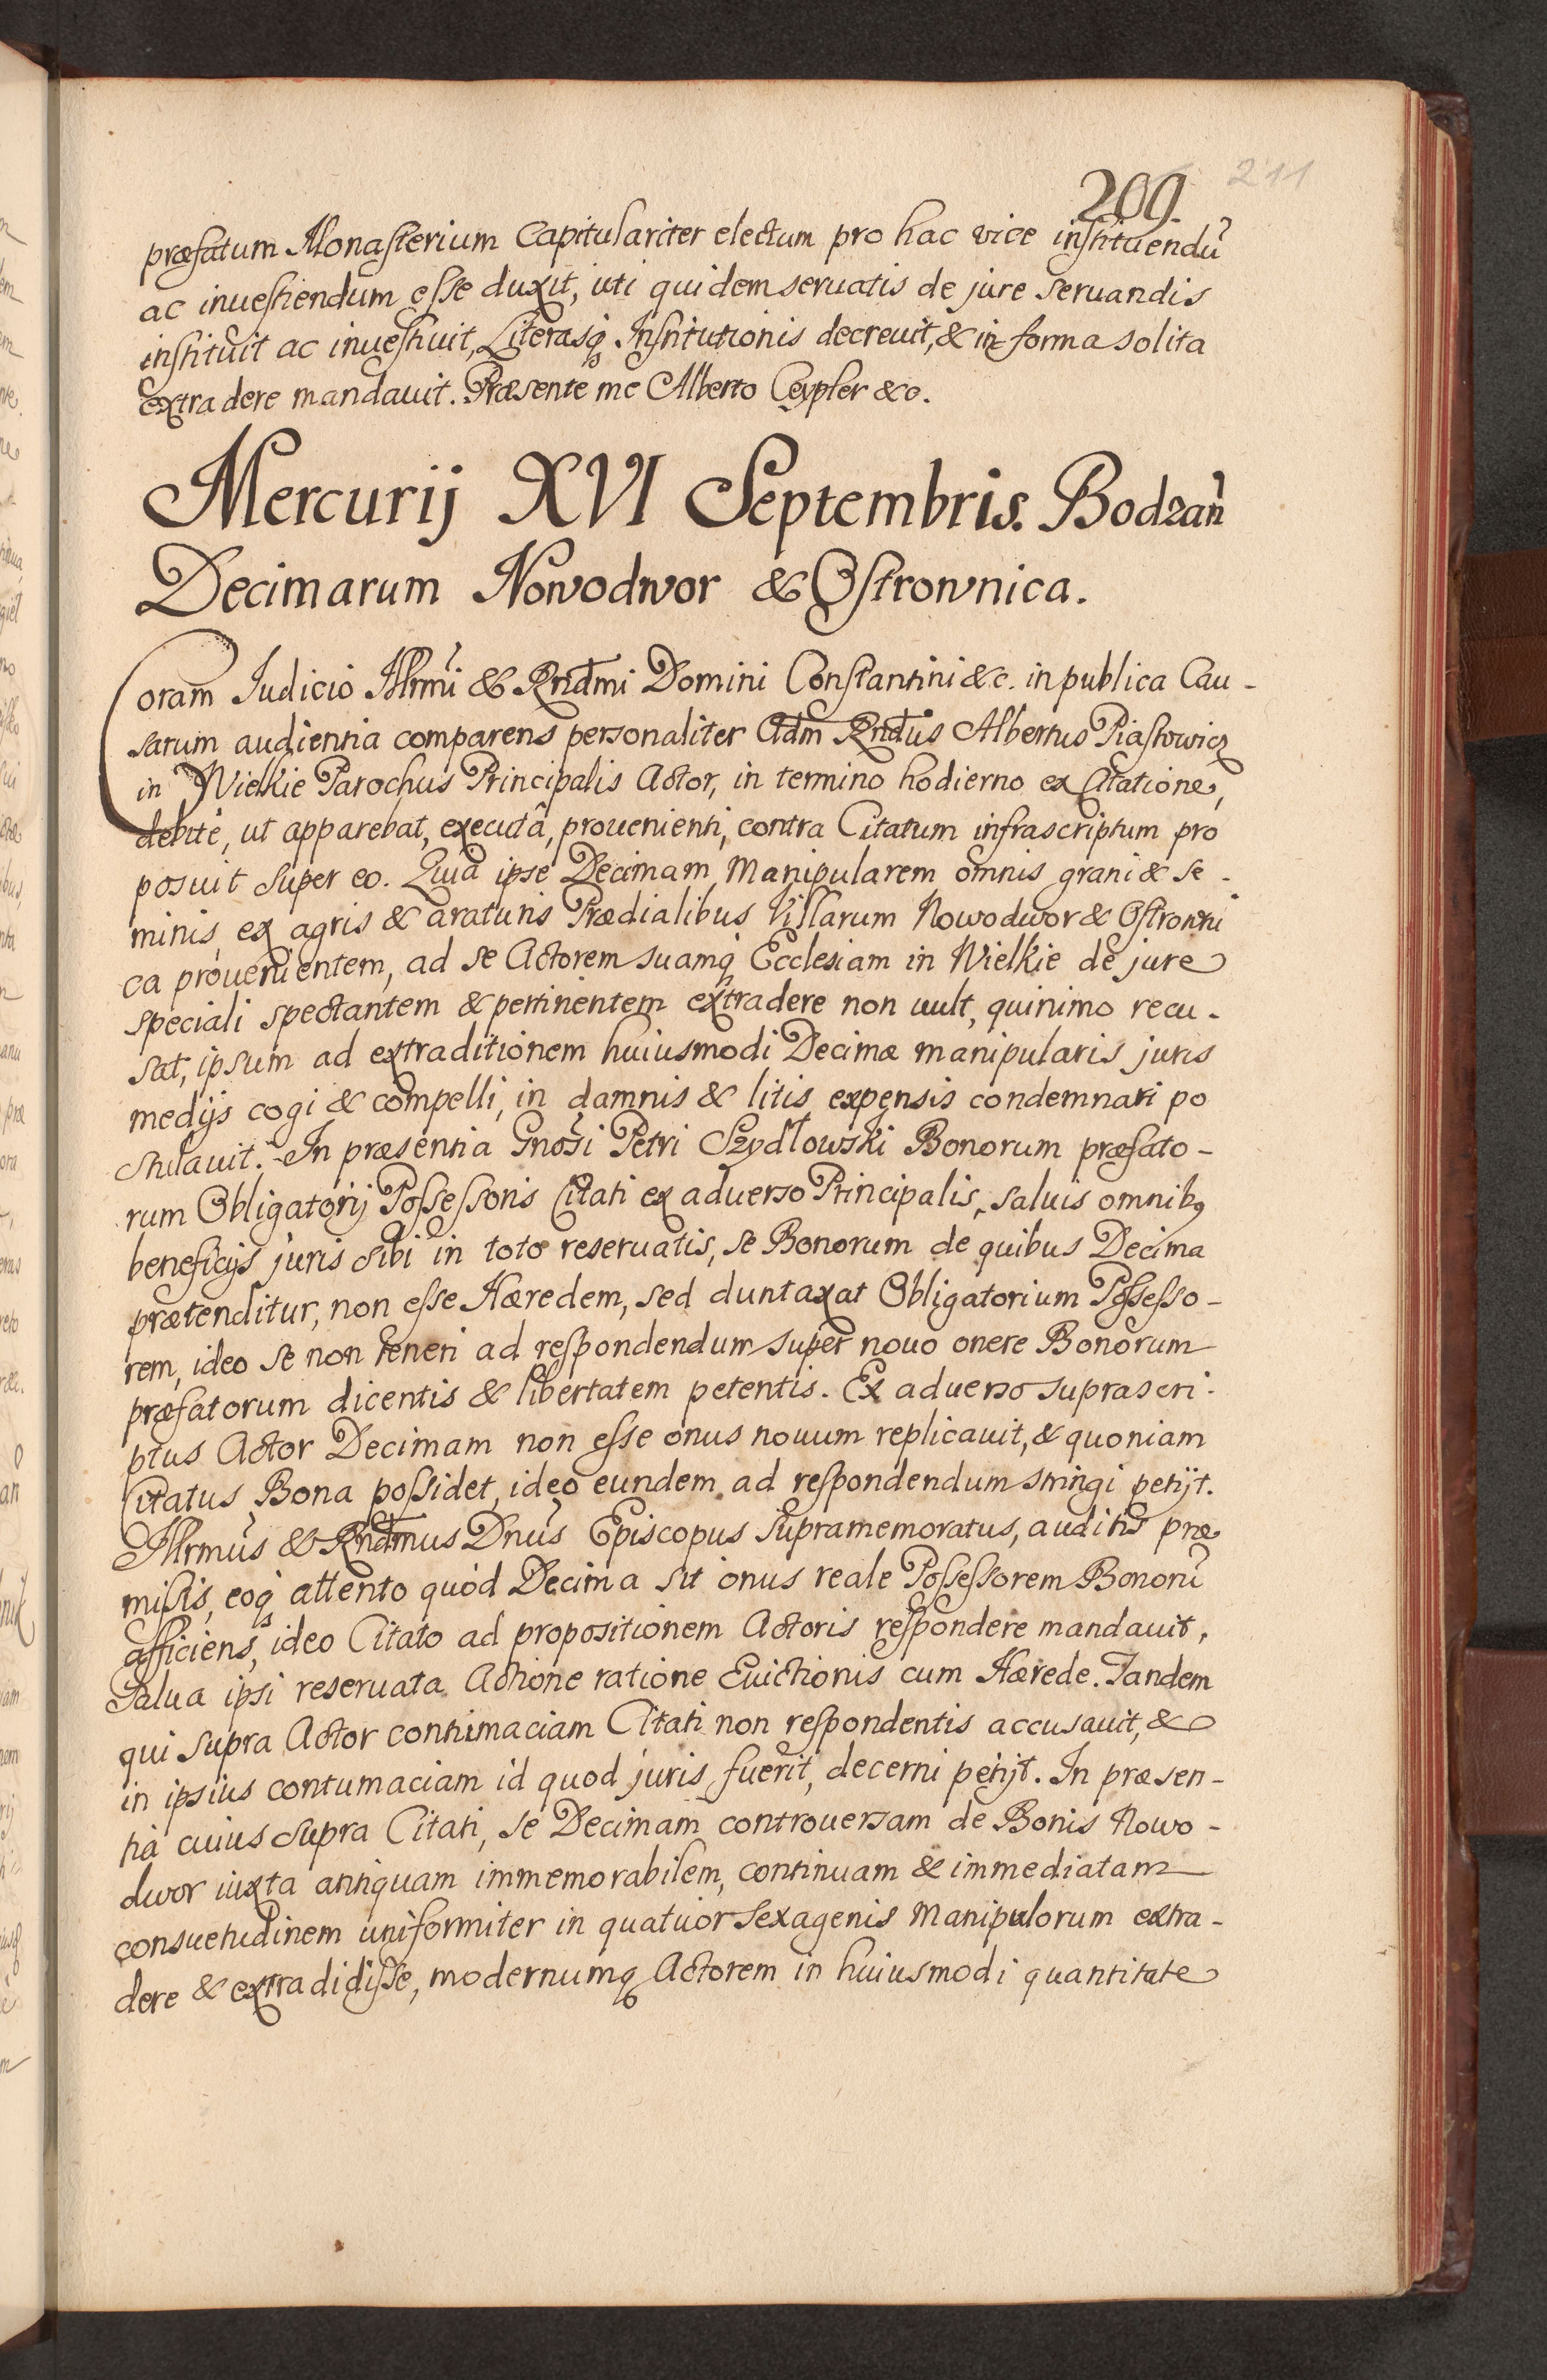 209. 211
præfatum Monasterium Capitulariter electum pro hac vice instituendũ
ac inuestiendum esse duxit, uti quidem seruatis de jure seruandis
instituit ac inuestiuit, Literasq́; Institutionis decreuit, & in forma solita
extradere mandauit. Præsente me Alberto Ceypler &c.
Mercurij XVI Septembris. Bodzań
Decimarum Nowodwor & Ostrownica.
Coram Iudicio Illrmi & Rndmi Domini Constantini &c. in publica Cau-
sarum audientia comparens personaliter Adm Rndus Albertus Piastowicz
in Wielkie Parochus Principalis Actor, in termino hodierno ex Citatione,
debitè, ut apparebat, executâ, prouenienti, contra Citatum infrascriptum pro
posuit super eo. Quia ipse Decimam Manipularem omnis grani & se-
minis ex agris & araturis Prædialibus Villarum Nowodwor & Ostrowni
ca prouenientem, ad se Actorem suamq́; Ecclesiam in Wielkie de jure
speciali spectantem & pertinentem extradere non uult, quinimo recu-
sat, ipsum ad extraditionem huiusmodi Decimæ manipularis juris
medijs cogi & compelli, in damnis & litis expensis condemnari po
stulauit. In præsentia Gnosi Petri Szydłowski Bonorum præfato-
rum Obligatorij Possessoris Citati ex aduerso Principalis, saluis omnibꝫ
beneficijs juris sibi in toto reseruatis, se Bonorum de quibus Decima
prætenditur, non esse Hæredem, sed duntaxat Obligatorium Possesso-
rem, ideo se non teneri ad respondendum super nouo onere Bonorum
præfatorum dicentis & libertatem petentis. Ex aduerso suprascri-
ptus Actor Decimam non esse onus nouum replicauit, & quoniam
Citatus Bona possidet, ideo eundem ad respondendum stringi petijt.
Illrmus & Rndmus Dnus Episcopus supramemoratus, auditis præ
missis, eoq́; attento quòd Decima sit onus reale Possessorem Bonorũ
afficiens, ideo Citato ad propositionem Actoris respondere mandauit,
Salua ipsi reseruata Actione ratione Euictionis cum Hærede. Tandem
qui supra Actor contumaciam Citati non respondentis accusauit, &
in ipsius contumaciam id quod juris fuerit, decerni petijt. In præsen-
tia cuius supra Citati, se Decimam controuersam de Bonis Nowo-
dwor iuxta antiquam immemorabilem, continuam & immediatam
consuetudinem uniformiter in quatuor sexagenis Manipulorum extra-
dere & extradidisse, modernumq́; Actorem in huiusmodi quantitate